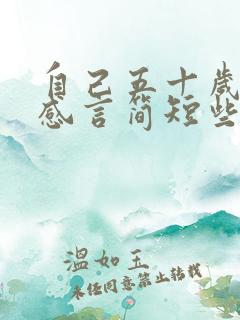 自己五十岁
感言简短些
温如玉
未经同意禁止转载